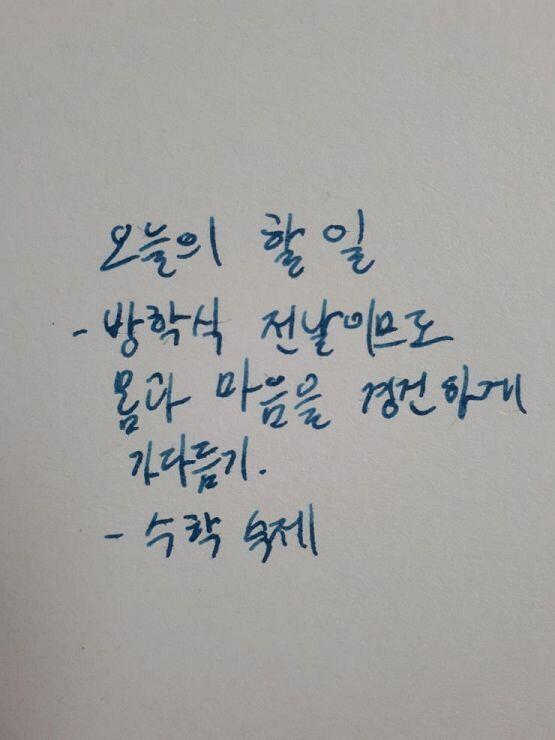 오늘의 할 일
- 방학식 전날이므로
몸과 마음을 경건하게
가다듬기.
- 수학 숙제